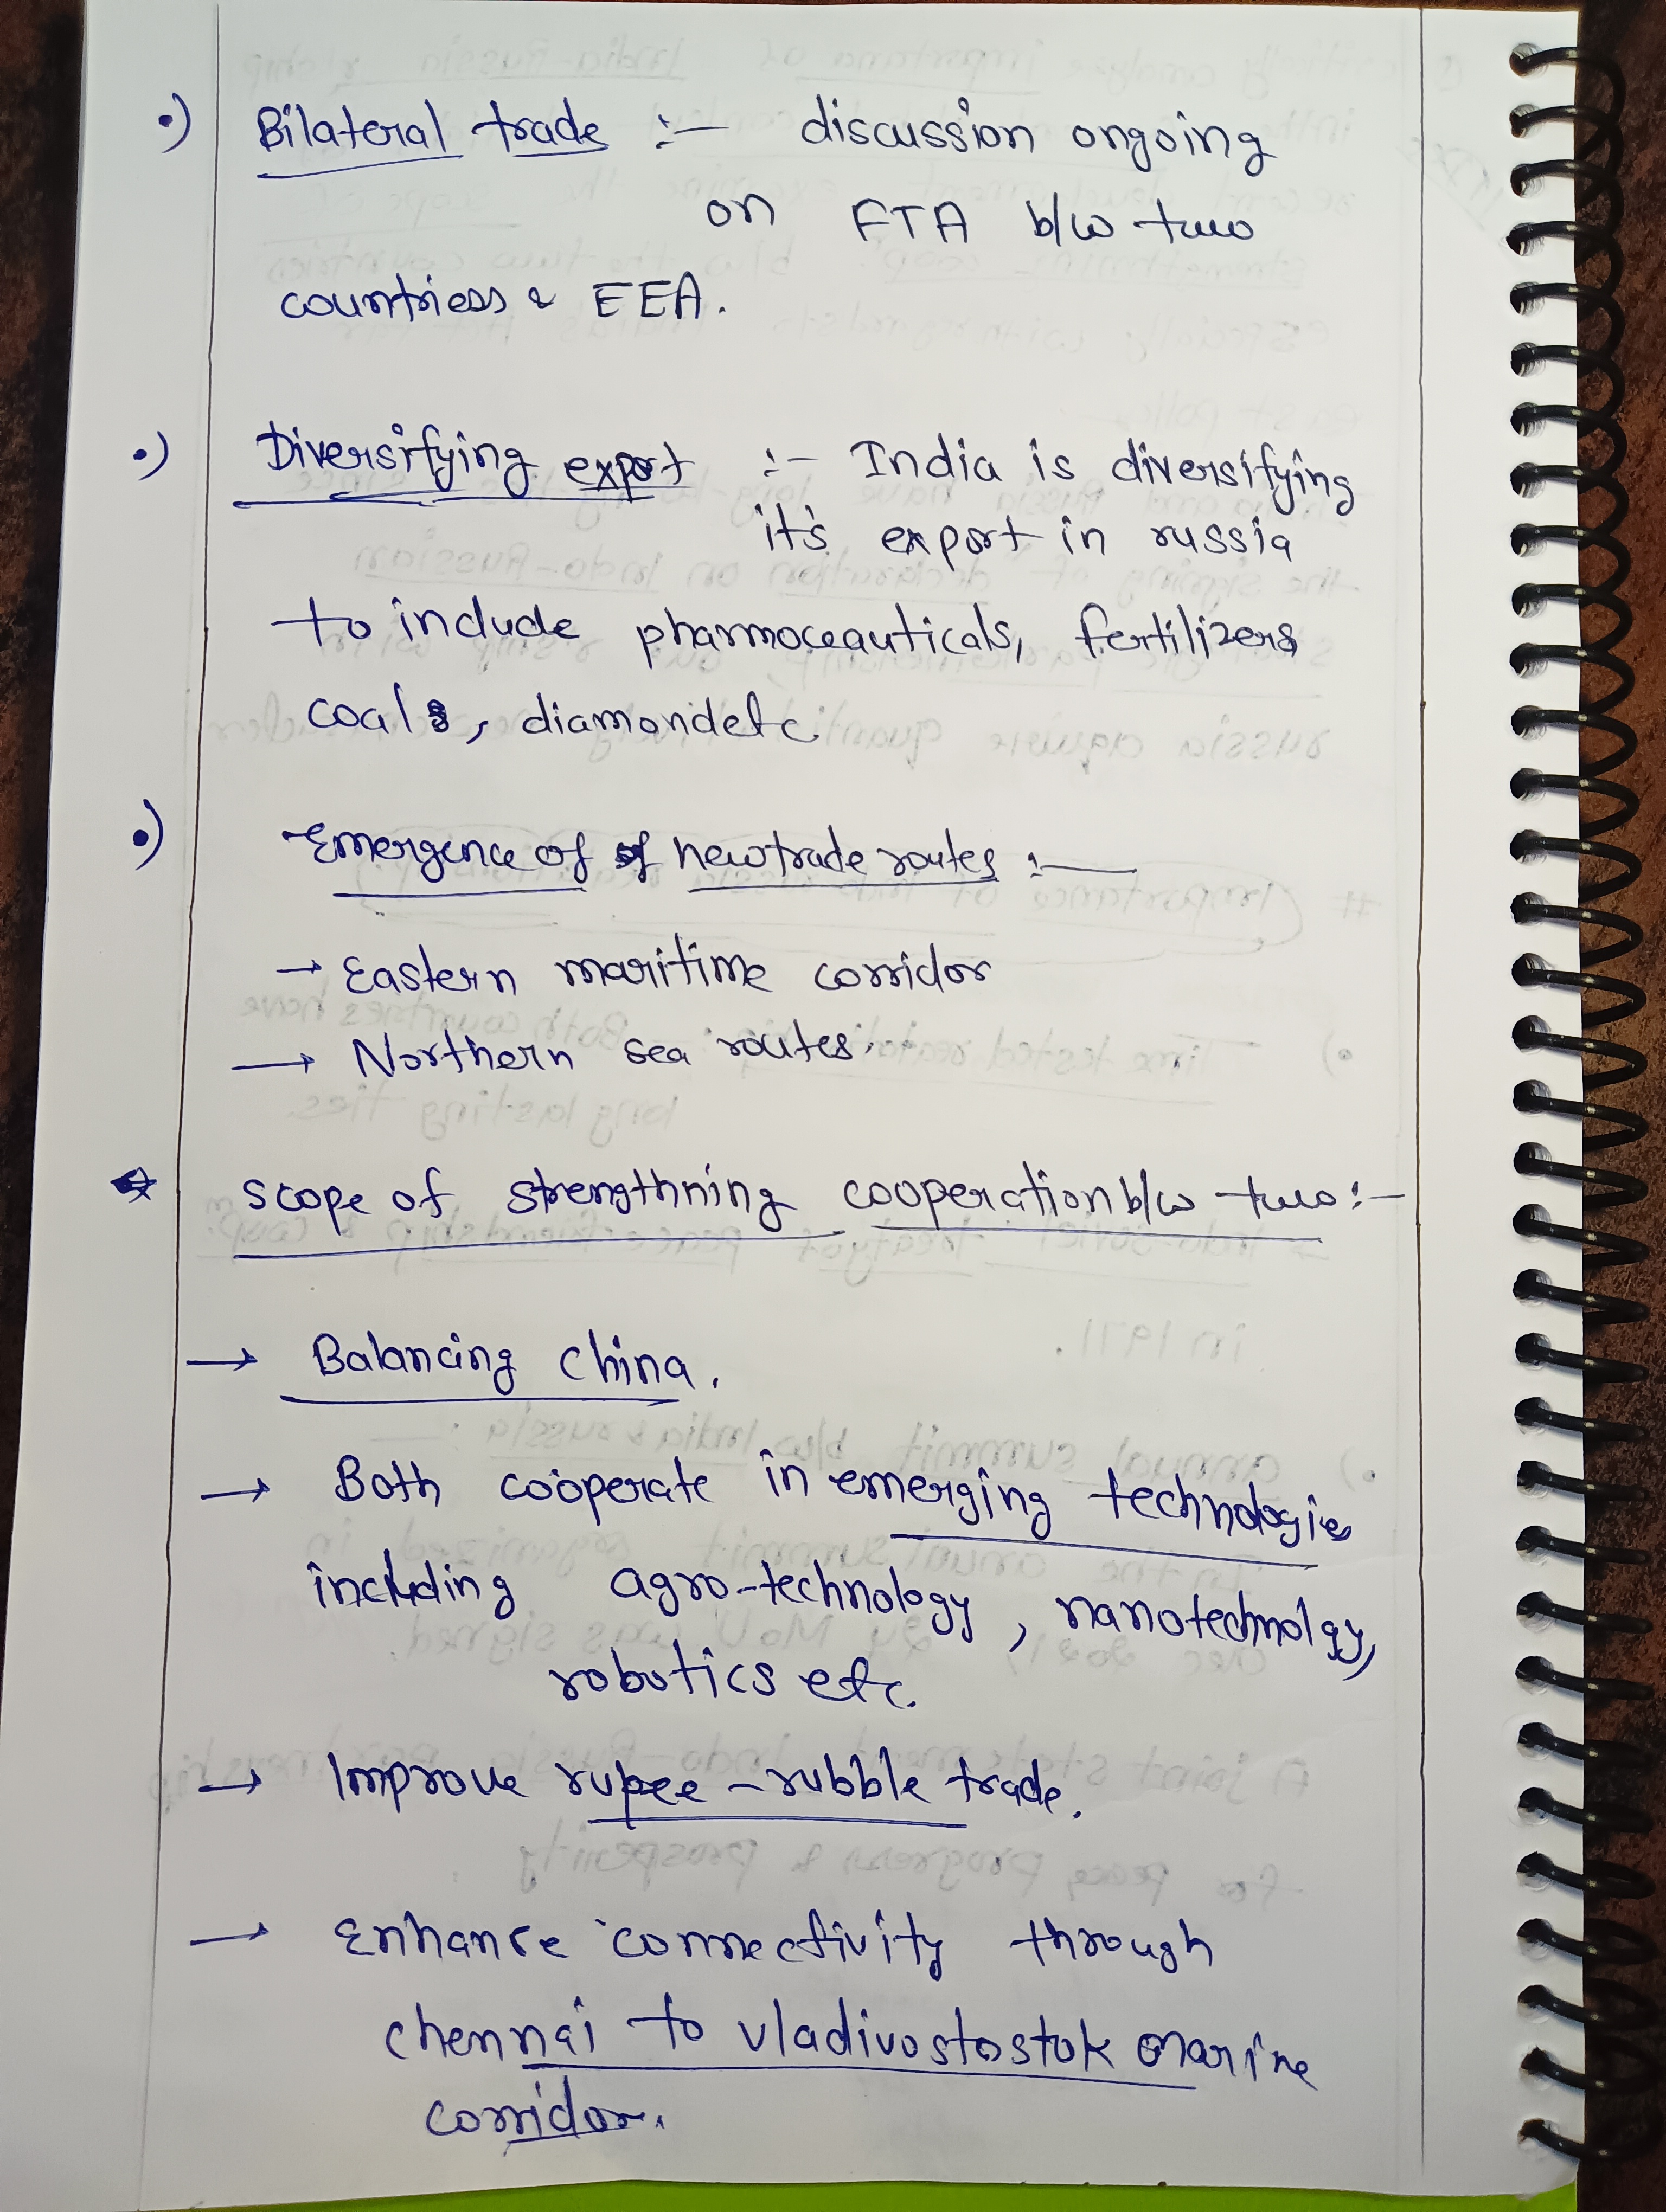 •) Bilateral trade :— discussion ongoing
on FTA b/w two
countriess & EEA.
•) Diversifying export :- India is diversifying
it's export in russia
to include pharmoceauticals, fertilizers
coals, diamondetc
•) Emergence of of newtrade routes :—
→ Eastern maritime corridor
→ Northern sea routes.
scope of strengthning cooperation b/w two :-
→ Balancing China.
→ Both cooperate in emerging technologies
including agro-technology, nanotechnolgy,
robotics etc.
→ Improve rupee - rubble trade.
→ Enhance connectivity through
chennai to vladivostostok marine
corridor.